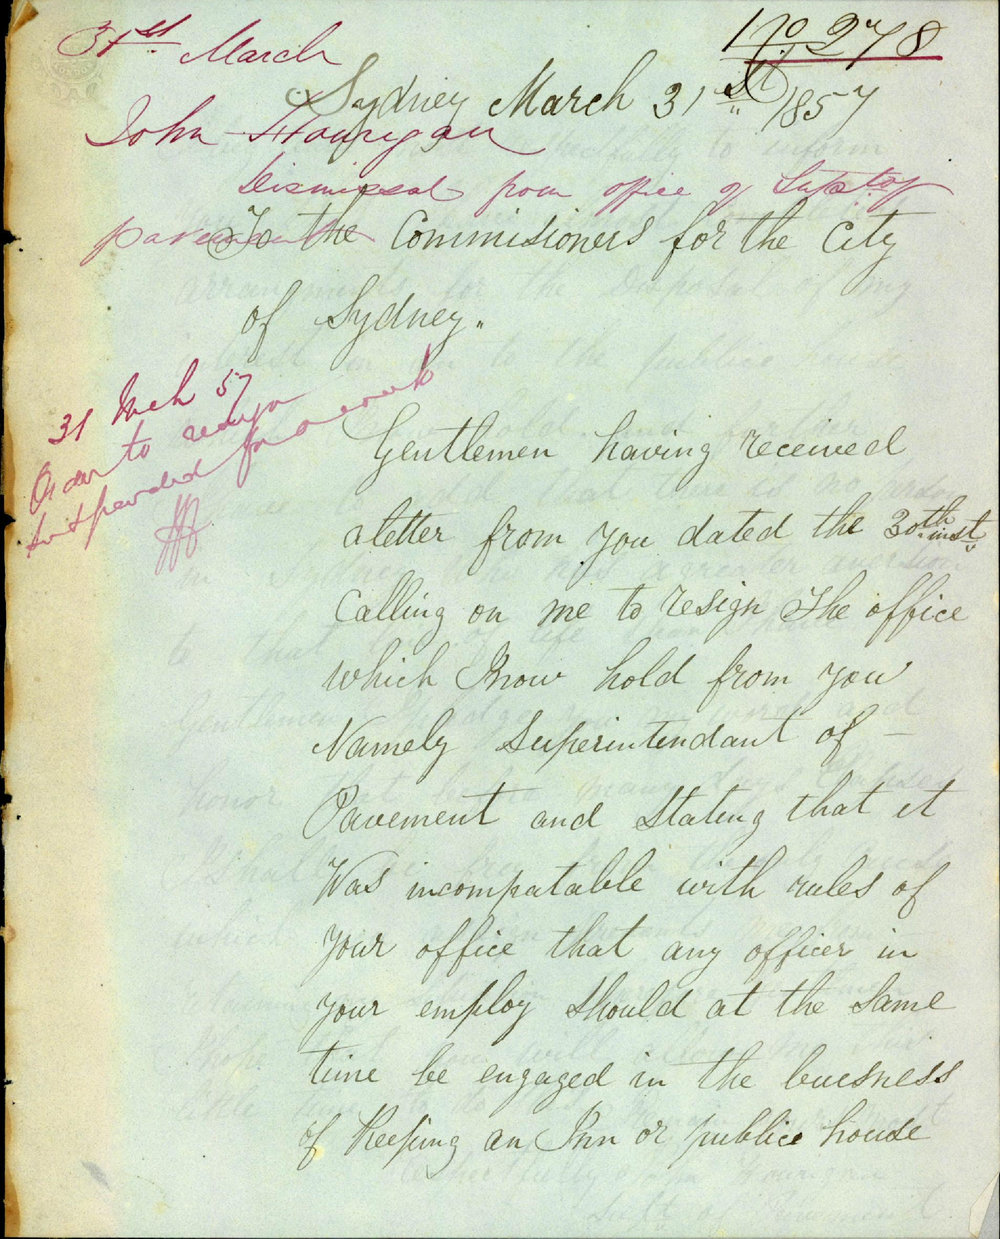 31st March
No 278
Sydney March 31st 1857
John Hourigan
Dismissal from office of Supt of
pavement
To the Commisioners for the City
of Sydney.
31 Mch 57
Order to resign
suspended for a week
Gentlemen having received
a letter from you dated the 30th inst
Calling on me to resign the office
which I now hold from you
Namely Superintendant of –
Pavement and Stateing that it
Was incompatable with rules of
your office that any officer in
your employ Should at the Same
time be engaged in the buesness
of Keeping an Inn or publice house